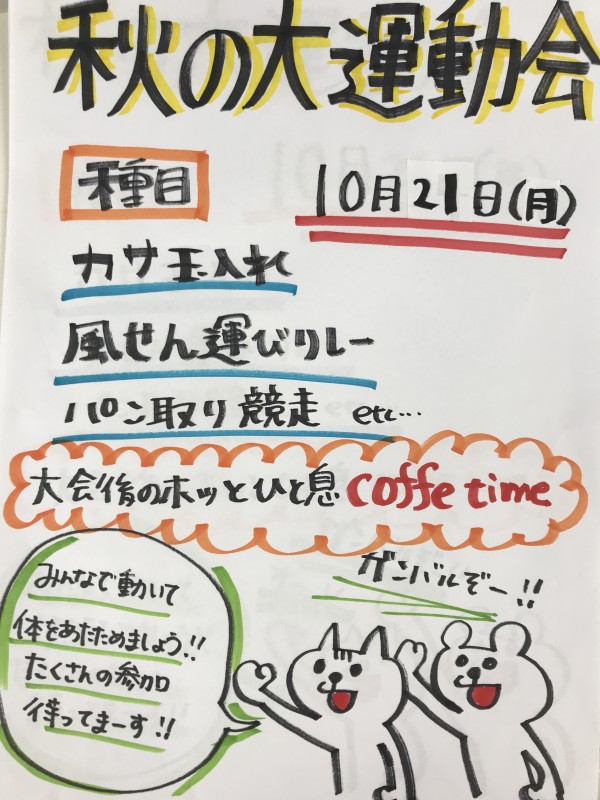 秋の大運動会
種目
10月21日(月)
カサ玉入れ
風せん運びリレー
パン取り競走 etc...
大会後のホッとひと息 coffe time
ガンバルぞー!!
みんなで動いて
体をあたためましょう!!
たくさんの参加
待ってまーす!!